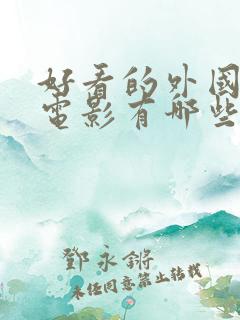 好看的外國
電影有哪些
鄧永鏘
未经同意禁止转载